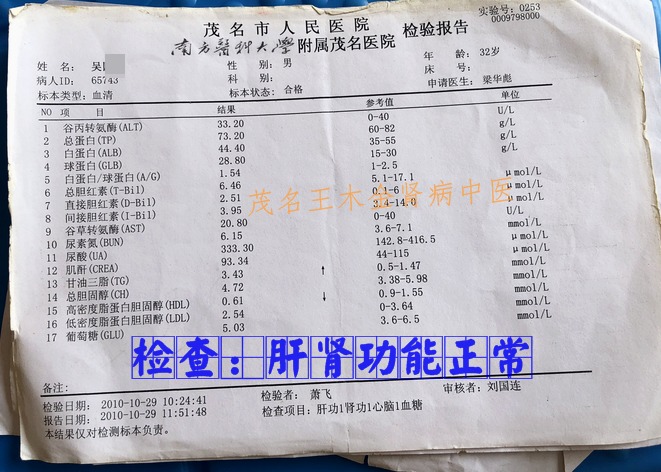 实验号: 0253
0009798000
茂名市人民医院
南方医科大学 附属茂名医院 检验报告
姓 名: 吴 性 别: 男 年 龄: 32岁
病人ID: 65743 科 别: 床 号:
标本类型: 血清 标本状态: 合格 申请医生: 梁华彪
NO 项 目 结果 参考值 单位
1 谷丙转氨酶(ALT) 33.20 0-40 U/L
2 总蛋白(TP) 73.20 60-82 g/L
3 白蛋白(ALB) 44.40 35-55 g/L
4 球蛋白(GLB) 28.80 15-30 g/L
5 白蛋白/球蛋白(A/G) 1.54 1-2.5
6 总胆红素(T-Bil) 6.46 5.1-17.1 μmol/L
7 直接胆红素(D-Bil) 2.51 0.1-6 μmol/L
8 间接胆红素(I-Bil) 3.95 3.4-14.0 μmol/L
9 谷草转氨酶(AST) 20.80 0-40 U/L
10 尿素氮(BUN) 6.15 3.6-7.1 mmol/L
11 尿酸(UA) 333.30 142.8-416.5 μmol/L
12 肌酐(CREA) 93.34 44-115 μmol/L
13 甘油三脂(TG) 3.43 ↑ 0.5-1.47 mmol/L
14 总胆固醇(CH) 4.72 3.38-5.98 mmol/L
15 高密度脂蛋白胆固醇(HDL) 0.61 ↓ 0.9-1.55 mmol/L
16 低密度脂蛋白胆固醇(LDL) 2.54 0-3.64 mmol/L
17 葡萄糖(GLU) 5.03 3.6-6.5 mmol/L
茂名王木会肾病中医
检查：肝肾功能正常
备注:
检验日期: 2010-10-29 10:24:41 检验者: 萧飞 审核者: 刘国连
报告日期: 2010-10-29 11:51:48 检查项目: 肝功1肾功1心脑1血糖
本结果仅对检测标本负责。